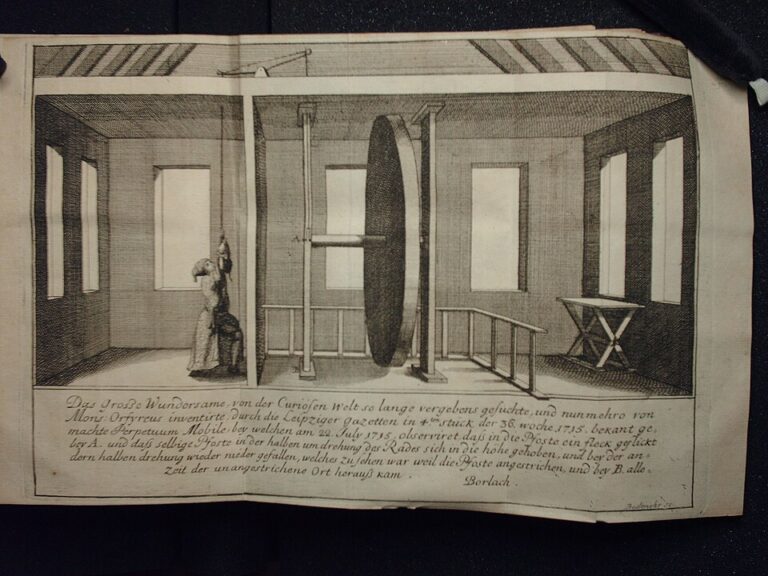 Das Grosse Wundersame, von der Curiösen Welt so lange vergebens gesuchte, und nunmehro von
Mons. Orfyreus inventirte, durch die Leipziger Gazetten in 4ten stuck der 36. woche 1715. bekant ge,
machte Perpetuum Mobile, bey welchen am 22. July 1715. observiret, daß in die Pfoste ein fleck geflickt
bey A. und daß selbige Pfoste in der halben um drehung des Rades sich in die höhe gehoben, und bey der an,
dern halben drehung wieder nieder gefallen, welches zu sehen war weil die Pfoste angestrichen, und bey B. alle,
zeit der unangestrichene Ort herauß kam.
Borlach.
A